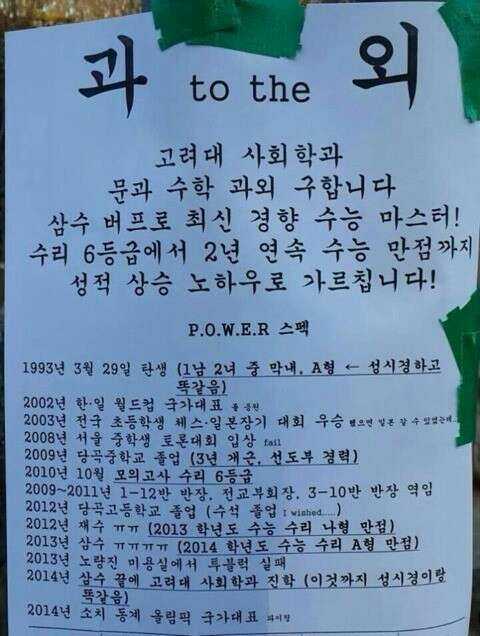 과 to the 외
고려대 사회학과
문과 수학 과외 구합니다
삼수 버프로 최신 경향 수능 마스터!
수리 6등급에서 2년 연속 수능 만점까지
성적 상승 노하우로 가르칩니다!
P.O.W.E.R 스펙
1993년 3월 29일 탄생 (1남 2녀 중 막내, A형 ← 성시경하고
똑같음)
2002년 한·일 월드컵 국가대표 를 응원
2003년 전국 초등학생 체스·일본장기 대회 우승 했으면 일본 갈 수 있었는데..
2008년 서울 중학생 토론대회 입상 fail
2009년 당곡중학교 졸업 (3년 개근, 선도부 경력)
2010년 10월 모의고사 수리 6등급
2009~2011년 1-12반 반장, 전교부회장, 3-10반 반장 역임
2012년 당곡고등학교 졸업 (수석 졸업 I wished.....)
2012년 재수 ㅠㅠ (2013 학년도 수능 수리 나형 만점)
2013년 삼수 ㅠㅠㅠㅠ (2014 학년도 수능 수리 A형 만점)
2013년 노량진 미용실에서 투블럭 실패
2014년 삼수 끝에 고려대 사회학과 진학 (이것까지 성시경이랑
똑같음)
2014년 소치 동계 올림픽 국가대표